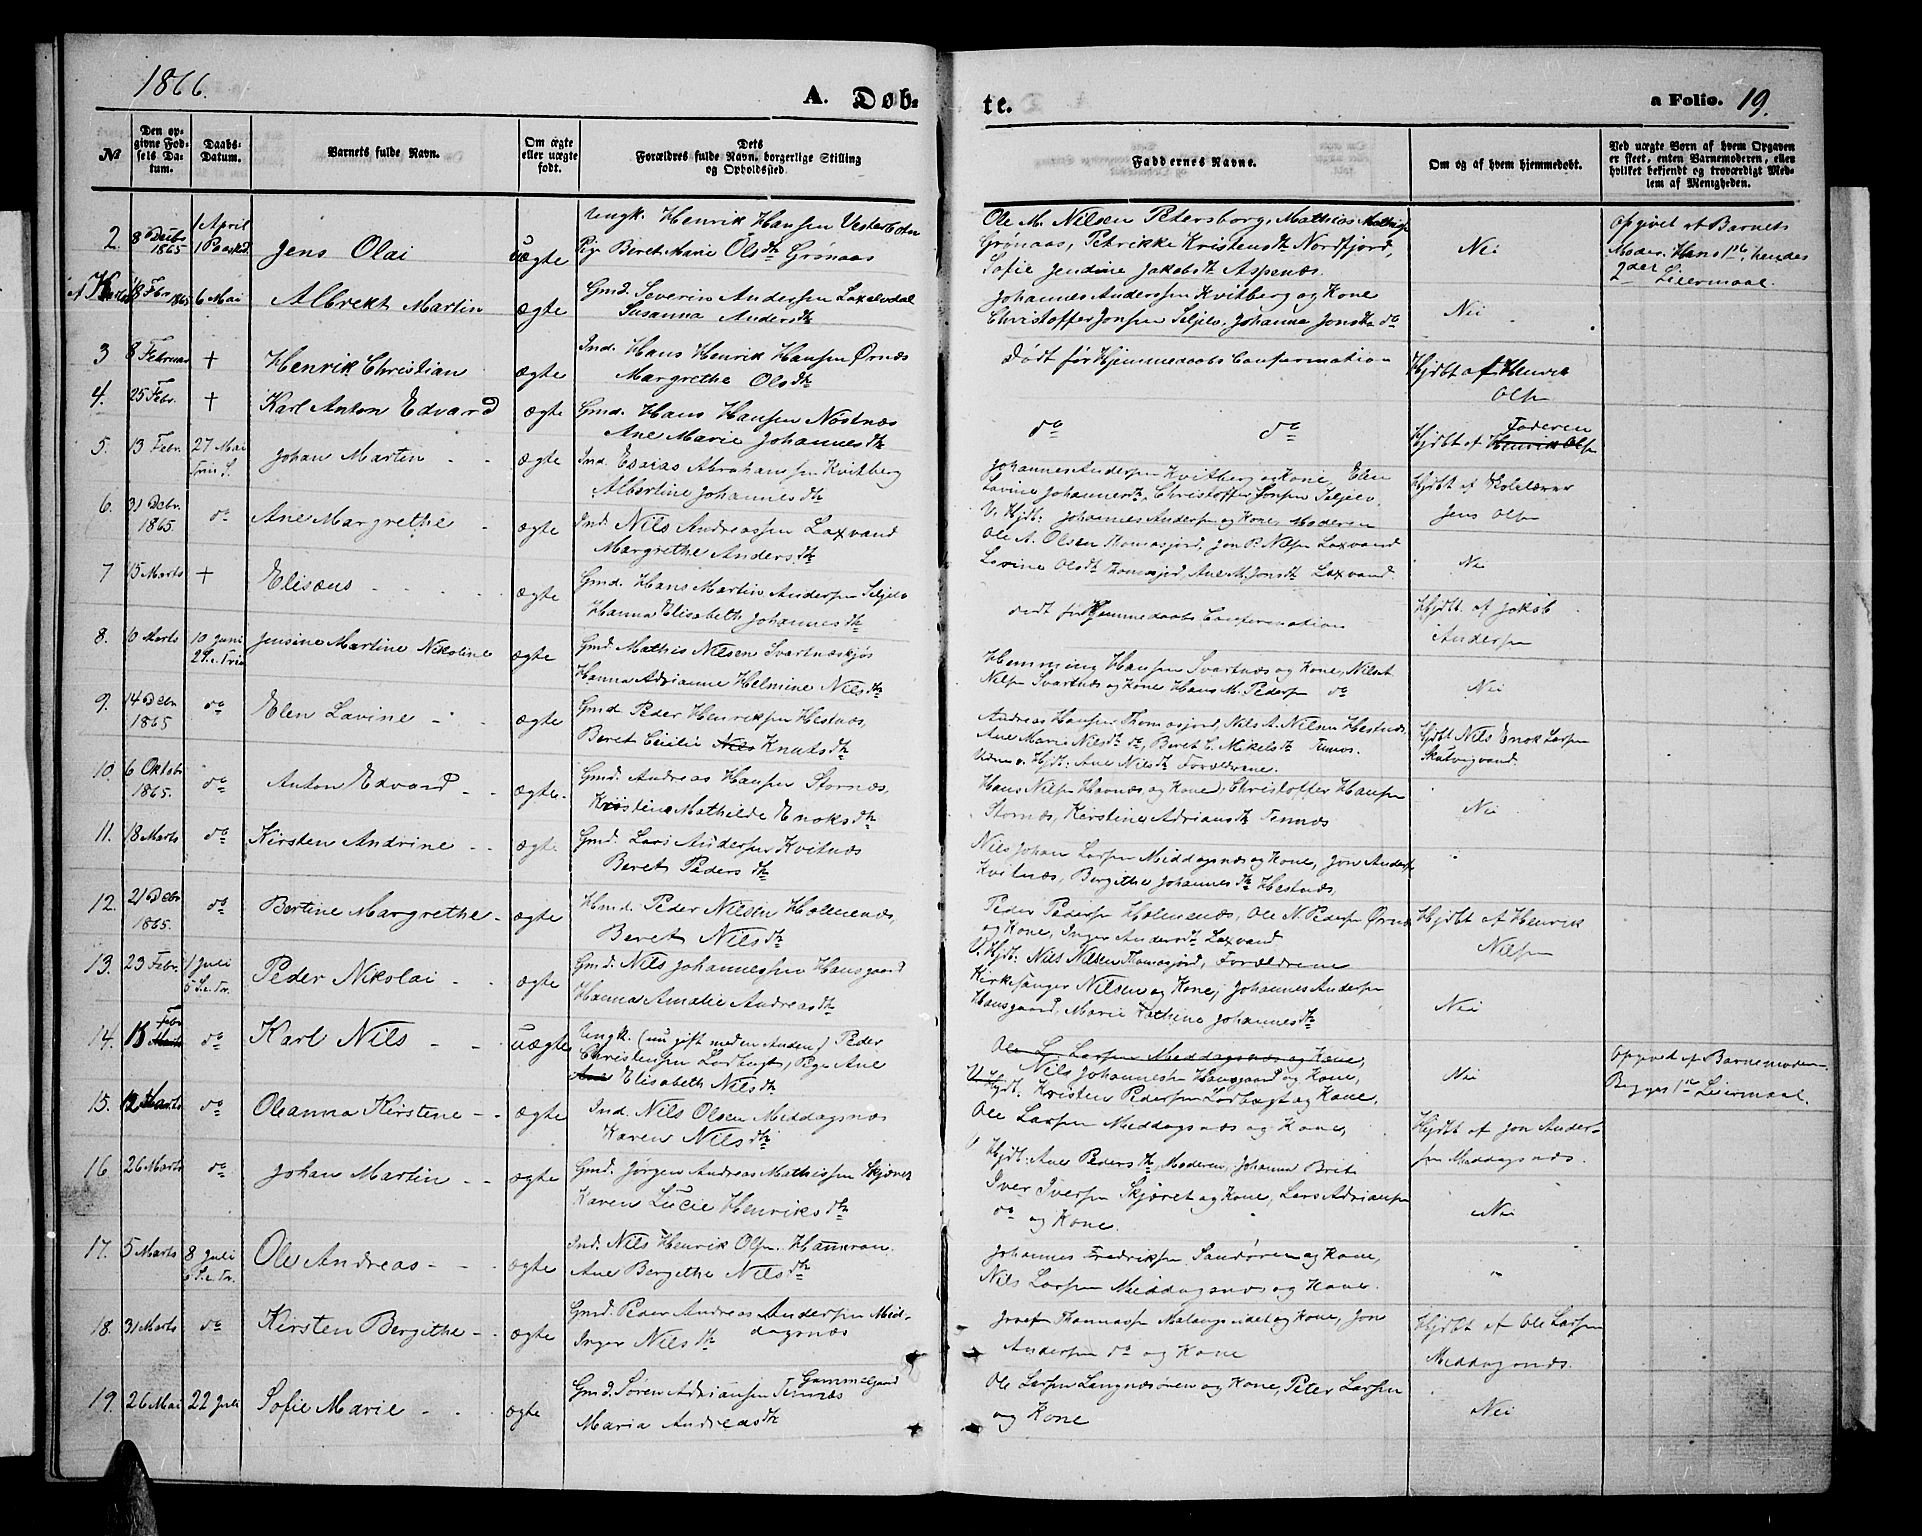 1866.
A. Døb-
te.
a Folio. 19.
№
Den op-
givne Fød-
sels Da-
tum.
Daabs-
Datum.
Barnets fulde Navn.
Om ægte
eller uægte
født.
Dets
Forældres fulde Navn, borgerlige Stilling
og Opholdssted.
Faddernes Navne.
Om og af hvem hjemmedøbt.
Ved uægte Børn af hvem Opgaven
er skeet, enten Barnemoderen, eller
hvilket bekjendt og troværdigt Med-
lem af Menigheden.
2. 8 Debr 1865
1 April
1 Paasked
Jens Olai
uægte
Ungk. Henrik Hansen
Pige Beret Marie Olsdtr Grønaas
Ole M. Nilsen Petersborg, Mathias
Grønaas, Petrikke Kristensdtr Nordfjord,
Sofie Jendine Jakobsdtr Aspenæs.
Nei
Opgivet af Barnets
Moder. Hans 1ste, hendes
2det Leiermaal.
18 Febr 1865
6 Mai
Albrekt Martin
ægte
Gmd. Severin Andersen Laxelvdal
Susanna Andersdtr
Johannes Andersen Kvitberg og Kone
Christoffer Jonsen Seljelv, Johanna Jonsdtr do
Nei
3 8 Februar
†
Henrik Christian
ægte
Ind. Hans Henrik Hansen Ørnæs
Margrethe Olsdtr
Dødt før Hjemmedaabs Confirmation
Hjdbt af Henrik
Olsen
4. 25 Febr.
†
Karl Anton Edvard
ægte
Gmd. Hans Hansen Nøstnæs
Ane Marie Johannesdtr
do do
Faderen
Hjdbt af Henrik Olsen
5. 13 Febr.
27 Mai
Trin. S.
Johan Martin
ægte
Ind. Esaias Abrahamsen Kvitberg
Albertine Johannesdtr
Johannes Andersen Kvitberg og Kone, Elen
Lavine Johannesdtr, Christoffer Jonsen Seljelv.
V. Hjdt: Johannes Andersen og Kone, Moderen
Hjdbt af Skolelærer
Jens Olsen
6. 31 Debr. 1865
do
Ane Margrethe
ægte
Ind. Nils Andreassen Laxvand
Margrethe Andersdtr
Ole A. Olsen Thomasjord, Jon P. Nilsen Laxvand
Lavine Olsdtr Thomasjord, Ane M. Jonsdtr Laxvand.
Nei
7 15 Marts
†
Elisæus
ægte
Gmd. Hans Martin Andersen Seljelv
Hanna Elisabeth Johannesdtr
dødt før Hjemmedaabs Confirmation
Hjdbt. af Jakob
Andersen
8. 6 Marts
10 Juni
2 S. e. Trin
Jensine Martine Nikoline
ægte
Gmd Mathis Nilsen Svartnæskjos
Hanna Adrianne Helmine Nilsdtr
Hemming Hansen Svartnæs og Kone, Nils
Nilsen Svartnæs og Kone Hans M. Pedersen do
Nei
9. 14 Debr 1865
do
Elen Lavine
ægte
Gmd. Peder Henriksen Hestnæs
Beret Cecilie Nils Knutsdtr
Andreas Hansen Thomasjord, Nils A. Nilsen Hestnæs,
Ane Marie Nilsdtr do, Beret C. Mikelsdtr Tennes.
Vidner v. Hjdt: Ane Nilsdtr Forældrene.
Hjdbt Nils Enok Larsen
Skutvigvand.
10. 6 Oktobr 1865.
do
Anton Edvard
ægte
Gmd. Andreas Hansen Stornæs,
Kristine Mathilde Enoksdtr
Hans Nilsen Havnæs og Kone, Christoffer Hansen
Stornæs, Kirstine Adriansdtr Tennæs
Nei
11. 18 Marts
do
Kirsten Andrine
ægte
Gmd. Lars Andersen Kvitnæs
Beret Pedersdtr
Nils Johan Larsen Middagsnæs og Kone, Jon Andersen
Kvitnæs, Bergithe Johannesdtr Hestnæs.
12. 21 Debr 1865.
do
Bertine Margrethe
ægte
Hmd. Peder Nilsen Holmenæs,
Beret Nilsdtr
Peder Pedersen Holmenæs, Ole N. Pedersen Ørnæs
og Kone, Inger Andersdtr Laxvand
V. Hjdt: Nils Nilsen Thomasjord, Forældrene
Hjdbt af Henrik
Nilsen
13. 23 Febr.
1 Juli
5 S. e. Tr.
Peder Nikolai
ægte
Gmd. Nils Johannessen Hansgaard
Hanna Amalie Andreasdtr
Kirkesanger Nilsen og Kone, Johannes Andersen
Hansgaard, Marie Kathine Johannesdtr
Nei
14. 15 Febr
do
Karl Nils
uægte
Ungk. (nu gift med en Anden) Peder
Christensen Lordbugt, Pige Ane
Elisabeth Nilsdtr
Ole L. Larsen Middagsnæs og Kone,
Nils Johannesen Hansgaard og Kone,
V. Hjdt. Kristen Pedersen Lordbugt og Kone.
Nei
Opgivet af Barnemoderen
Begges 1ste Leiermaal.
15. 12 Marts
do
Oleanna Kirstine
ægte
Ind. Nils Olsen Middagsnæs
Karen Nilsdtr
Ole Larsen Middagsnæs og Kone,
V Hjdt: Ane Pedersdtr, Moderen, Johanna Brit
Hjdbt af Jon Ander-
sen Middagsnæs.
16. 26 Marts
do
Johan Martin
ægte
Gmd. Jørgen Andreas Mathissen Skjæret
Karen Lucie Henriksdtr
Iver Iversen Skjæret og Kone, Lars Adriansen
do og Kone.
Nei
17. 5 Marts
8 Juli
6 S. e. Tr.
Ole Andreas
ægte
Ind. Nils Henrik Olsen Hamran
Ane Bergithe Nilsdtr
Johannes Fredriksen Sandøren og Kone,
Nils Larsen Middagsnæs og Kone.
"
18. 31 Marts
do
Kirsten Bergithe
ægte
Gmd. Peder Andreas Andersen Mid-
dagsnæs
Inger Nilsdtr
Josefen Thomassen Malangseidet og Kone, Jon
Andersen do og Kone
Hjdbt af Ole Larsen
Middagsnæs.
19. 26 Mai
22 Juli
Sofie Marie
ægte
Gammelgaard
Gmd. Søren Adriansen Tennæs
Maria Andreasdtr
Ole Larsen Langnæsøren og Kone, Peter Larsen
og Kone
Nei